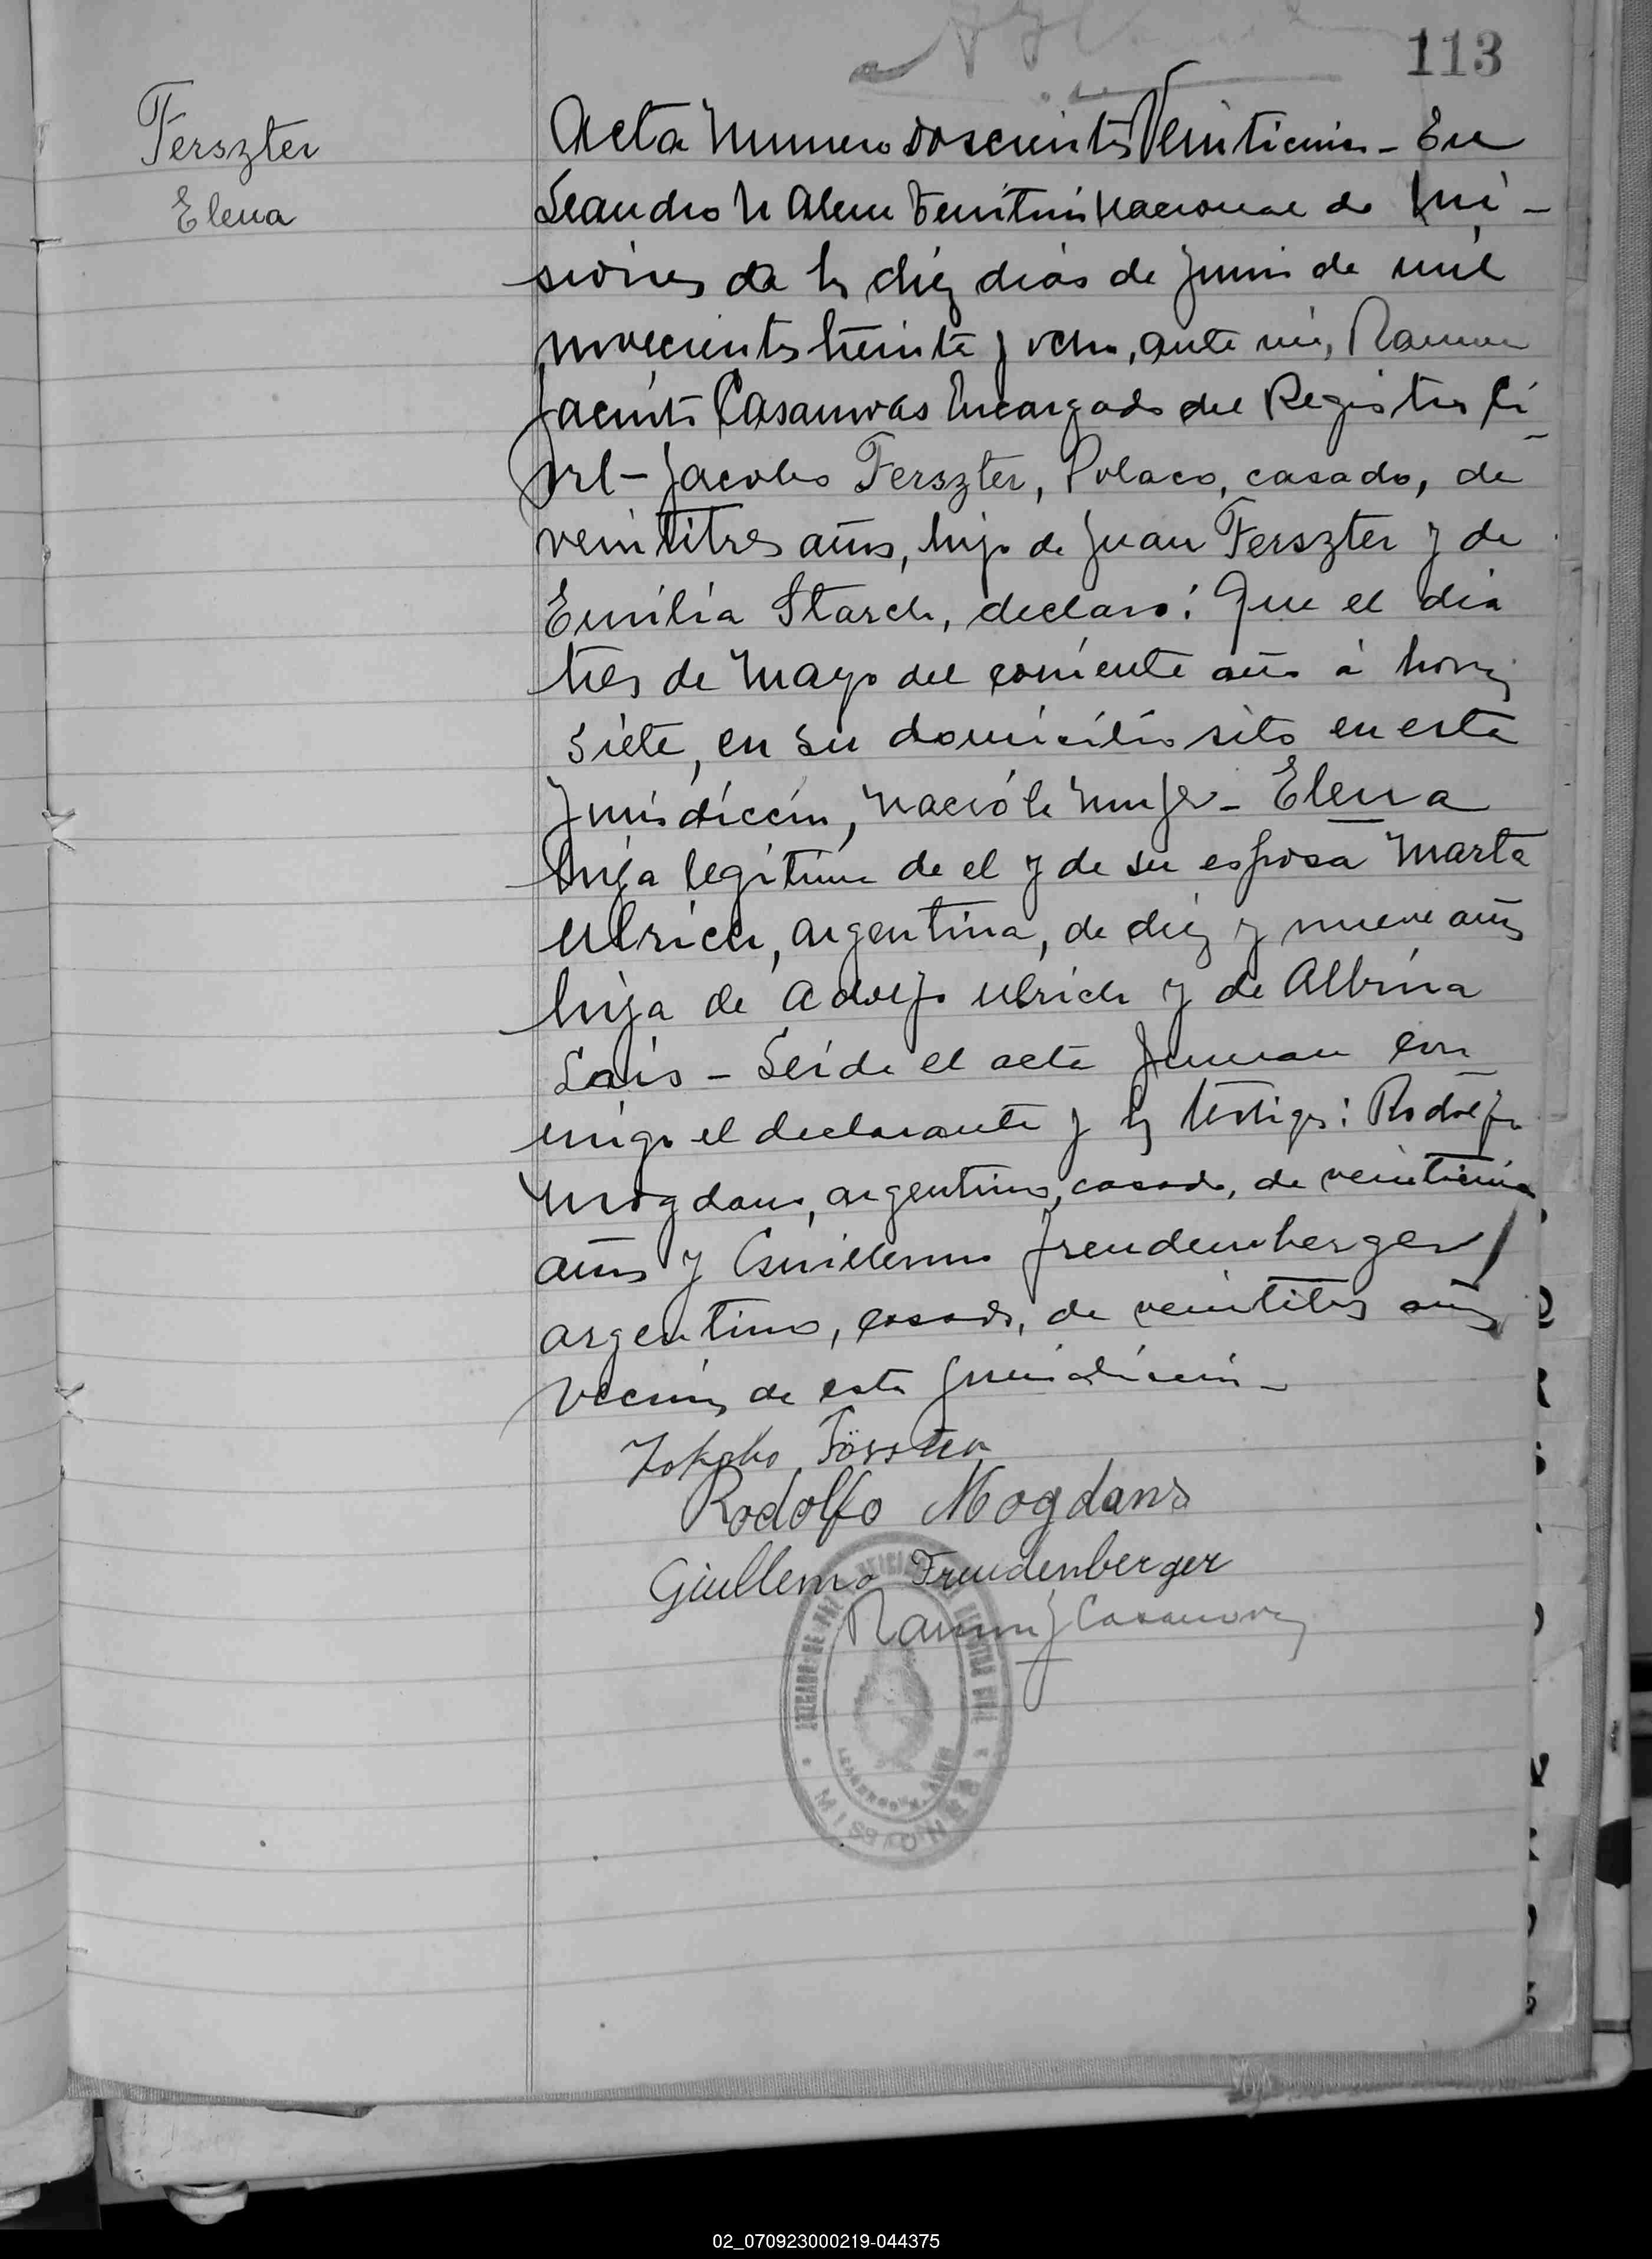 113
Ferszter
Elena
Acta Numero doscientos Veinticinco - En
Leandro N Alem Territorio Nacional de Mi-
siones a los diez dias de Junio de mil
novecientos treinta y ocho, ante mí, Ramon
Jacinto Casanovas Encargado del Registro Ci-
vil - Jacobo Ferszter, Polaco, casado, de
veintitres años, hijo de Juan Ferszter y de
Emilia Starch, declaró: Que el dia
tres de Mayo del corriente año á horas
siete, en su domicilio sito en esta
Jurisdiccion, nació la mujer - Elena
hija legítima de el y de su esposa Marta
Ulrich, argentina, de diez y nueve años
hija de Adolfo Ulrich y de Albina
Lais - Leida el acta firman con-
migo el declarante y los testigos: Rodolfo
Mogdans, argentino, casado, de veinticinco
años y Guillermo Freudemberger
argentino, casado, de veintitres años
vecinos de esta jurisdiccion -
Jokobo Förster
Rodolfo Mogdans
Giullermo Freudenberger
Ramon J Casanovas
JUZGADO DE PAZ REGISTRO CIVIL
LEANDRO N. ALEM
MISIONES
02_070923000219-044375